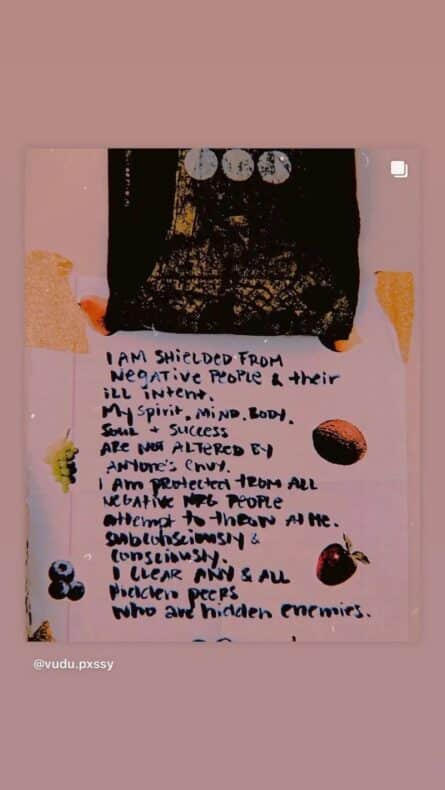 I AM SHiELDED FROM
Negative People & their
iLL intent.
My Spirit, MiND, BODY,
Soul + Success
ARE NOT ALTERED BY
ANYONE'S ENVY.
I AM PROTECTED FROM ALL
NEGATIVE NRG PEOPLE
Attempt to THROW At Me.
Subconsciously &
Consciously.
I CLEAR ANY & ALL
Hidden peers
Who are hidden enemies.
@vudu.pxssy